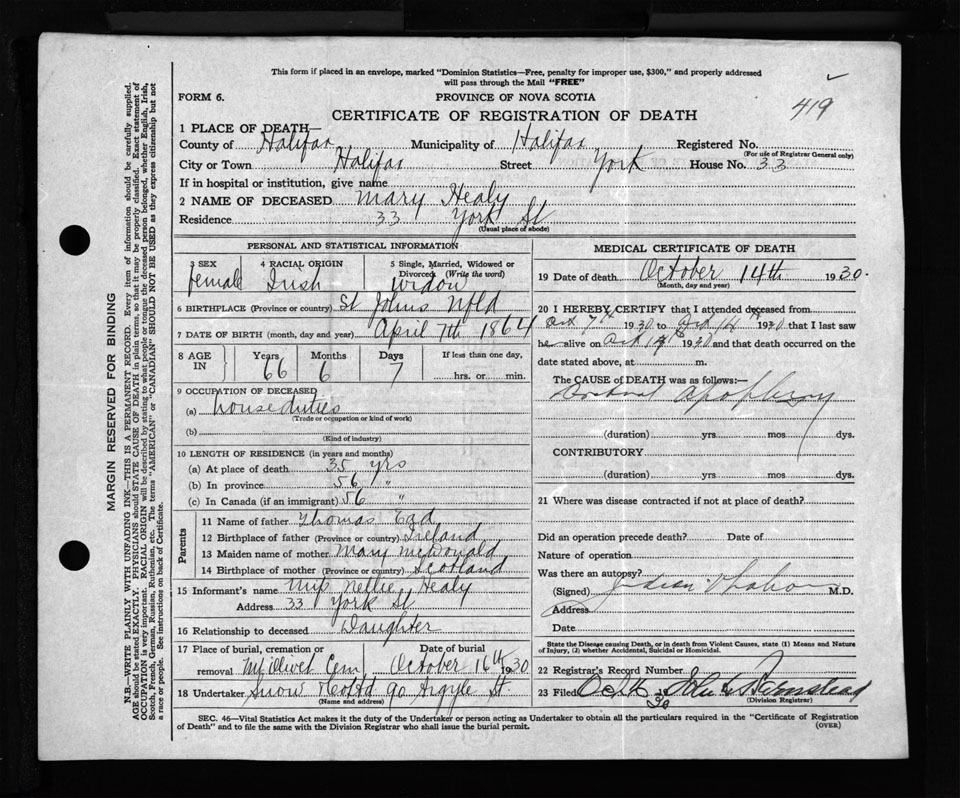 This form if placed in an envelope, marked "Dominion Statistics—Free, penalty for improper use, $300," and properly addressed
will pass through the Mail "FREE"
FORM 6.
PROVINCE OF NOVA SCOTIA
419
CERTIFICATE OF REGISTRATION OF DEATH
1 PLACE OF DEATH—
County of Halifax Municipality of Halifax Registered No.
(For use of Registrar General only)
City or Town Halifax Street York House No. 33
If in hospital or institution, give name
2 NAME OF DECEASED Mary Healy
Residence 33 York St
(Usual place of abode)
PERSONAL AND STATISTICAL INFORMATION
3 SEX 4 RACIAL ORIGIN 5 Single, Married, Widowed or
Divorced (Write the word)
female Irish widow
6 BIRTHPLACE (Province or country) St Johns Nfld
7 DATE OF BIRTH (month, day and year) April 7th 1864
8 AGE IN Years Months Days If less than one day,
66 6 7 hrs. or min.
9 OCCUPATION OF DECEASED
(a) house duties
(Trade or occupation or kind of work)
(b)
(Kind of industry)
10 LENGTH OF RESIDENCE (in years and months)
(a) At place of death 35 yrs
(b) In province 56 "
(c) In Canada (if an immigrant) 56 "
Parents
11 Name of father Thomas
12 Birthplace of father (Province or country) Ireland
13 Maiden name of mother Mary McDonald
14 Birthplace of mother (Province or country) Scotland
15 Informant's name Miss Nellie Healy
Address 33 York St
16 Relationship to deceased Daughter
17 Place of burial, cremation or Date of burial
removal Mt Olivet Cem October 16th 30
18 Undertaker Snow & Co Ltd 90 Argyle St.
(Name and address)
MEDICAL CERTIFICATE OF DEATH
19 Date of death October 14th 1930.
(Month, day and year)
20 I HEREBY CERTIFY that I attended deceased from
Oct 7th 1930 to Oct 14 1930 that I last saw
he alive on Oct 1930 and that death occurred on the
date stated above, at m.
The CAUSE OF DEATH was as follows:—
apoplexy
(duration) yrs mos dys.
CONTRIBUTORY
(duration) yrs mos dys.
21 Where was disease contracted if not at place of death?
Did an operation precede death? Date of
Nature of operation
Was there an autopsy?
(Signed) M.D.
Address
Date
State the Disease causing Death, or in death from Violent Causes, state (1) Means and Nature
of Injury, (2) whether Accidental, Suicidal or Homicidal.
22 Registrar's Record Number
23 Filed Oct 16 30
(Division Registrar)
SEC. 46—Vital Statistics Act makes it the duty of the Undertaker or person acting as Undertaker to obtain all the particulars required in the "Certificate of Registration
of Death" and to file the same with the Division Registrar who shall issue the burial permit.
(OVER)
MARGIN RESERVED FOR BINDING
N.B.—WRITE PLAINLY WITH UNFADING INK—THIS IS A PERMANENT RECORD. Every item of information should be carefully supplied.
AGE should be stated EXACTLY. PHYSICIANS should STATE CAUSE OF DEATH in plain terms, so that it may be properly classified. Exact statement of
OCCUPATION is very important. RACIAL ORIGIN will be described by stating to what people or tongue the deceased person belonged, whether English, Irish,
Scotch, French, German, Russian, Ruthenian, etc. The terms "AMERICAN" or "CANADIAN" SHOULD NOT BE USED as they express citizenship but not
a race or people. See instructions on back of Certificate.